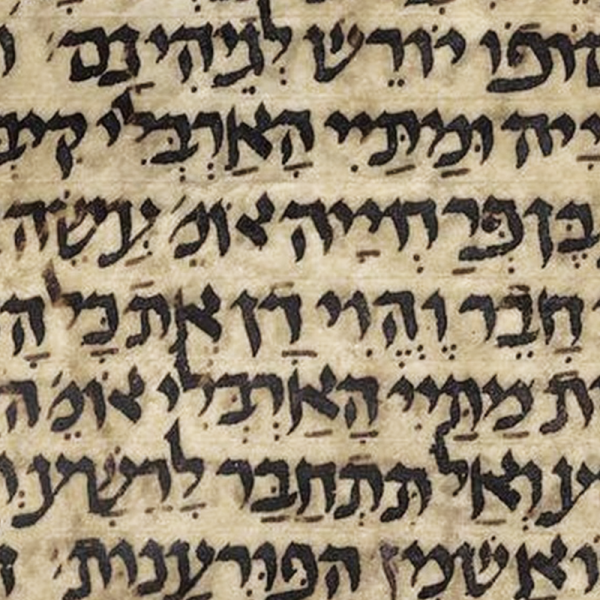 סופו יורש לגיהינם
ייה ומתיי הארבלי קיב
בן פרחייה אומ' עשה
חבר והוי דן את כל ה
ות מתיי הארבלי אומ' ה
רע ואל תתחבר לרשע
ואש מן הפורענות